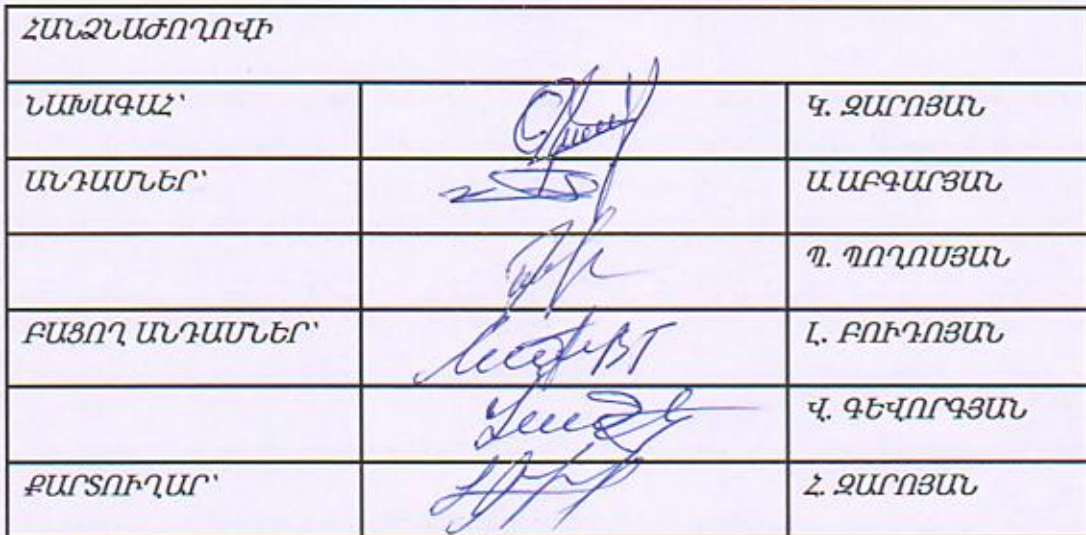 ՀԱՆՁՆԱԺՈՂՈՎԻ
ՆԱԽԱԳԱՀ՝ Կ. ԶԱՐՈՅԱՆ
ԱՆԴԱՄՆԵՐ՝ Ա.ԱԲԳԱՐՅԱՆ
Պ. ՊՈՂՈՍՅԱՆ
ԲԱՑՈՂ ԱՆԴԱՄՆԵՐ՝ Լ. ԲՈՒԴՈՅԱՆ
Վ. ԳԵՎՈՐԳՅԱՆ
ՔԱՐՏՈՒՂԱՐ՝ Հ. ԶԱՐՈՅԱՆ